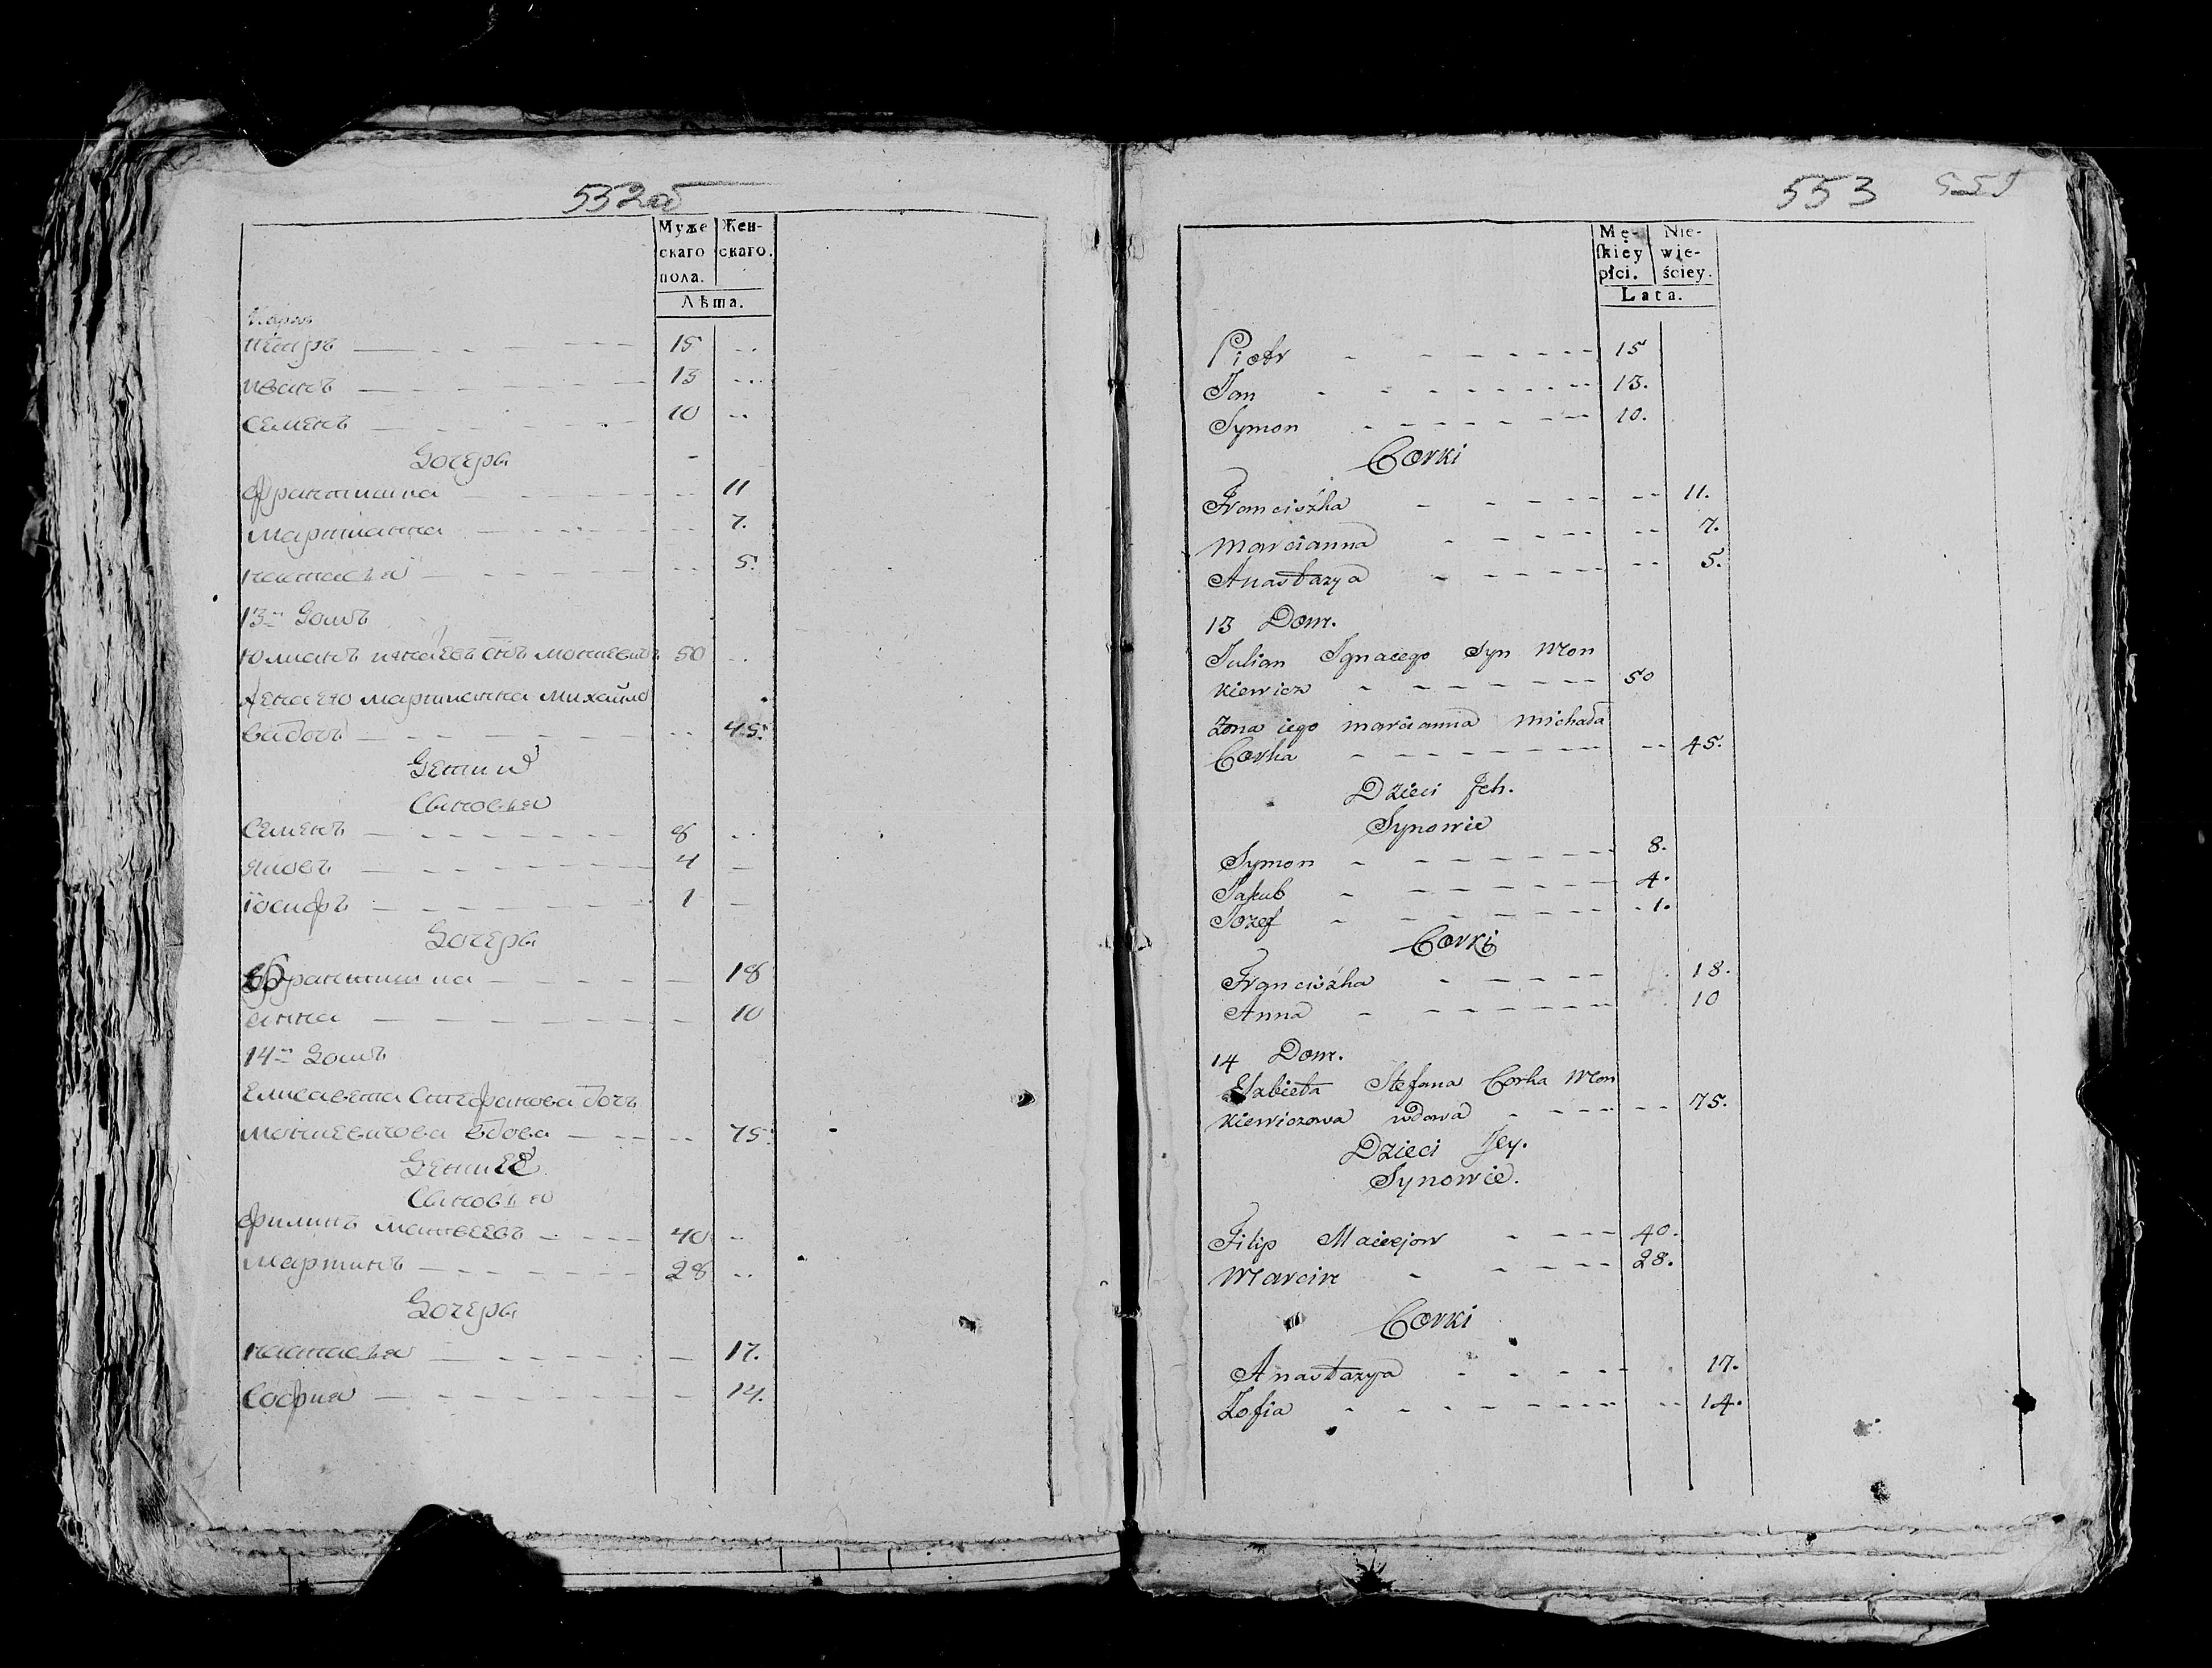 532об
Муже Жен-
скаго скаго.
пола.
Лѣта.
Петръ 15
Иванъ 13
Семенъ 10
Дочери
Францишка 11
Мартианна 7.
Настасья 5.
13й Домъ
Юлианъ Игнацевъ снъ Монкевичъ 50
Жена его Мартианна Михайло
ва дочь 45.
Дети и̃
Сыновья
Семенъ 8
Яковъ 4
Іосифъ 1
Дочери
Францишка 18
Анна 10
14й Домъ
Елисавета Стефанова дочь
Монкевичова вдова 75.
Дети ее
Сыновья
Филипъ Матвеевъ 40
Мартинъ 28
Дочери
Настасья 17.
София 14.
553
Mę- Nie-
ſkiey wie-
płci. ściey.
Lata.
Piotr 15
Jan 13.
Symon 10.
Corki
Franciszka 11.
Marcianna 7.
Anastazya 5.
13 Dom.
Julian Ignacego Syn Mon
kiewicz 50
Zona iego Marcianna Michała
Corka 45.
Dzieci Jch.
Synowie
Symon 8.
Jakub 4.
Jozef 1.
Corki
Franciszka 18.
Anna 10
14 Dom.
Elzbieta Stefana Corka Mon
kiewiczowa wdowa 75.
Dzieci Jey.
Synowie.
Filip Maciejow 40.
Marcin 28.
Corki
Anastazya 17.
Zofia 14.